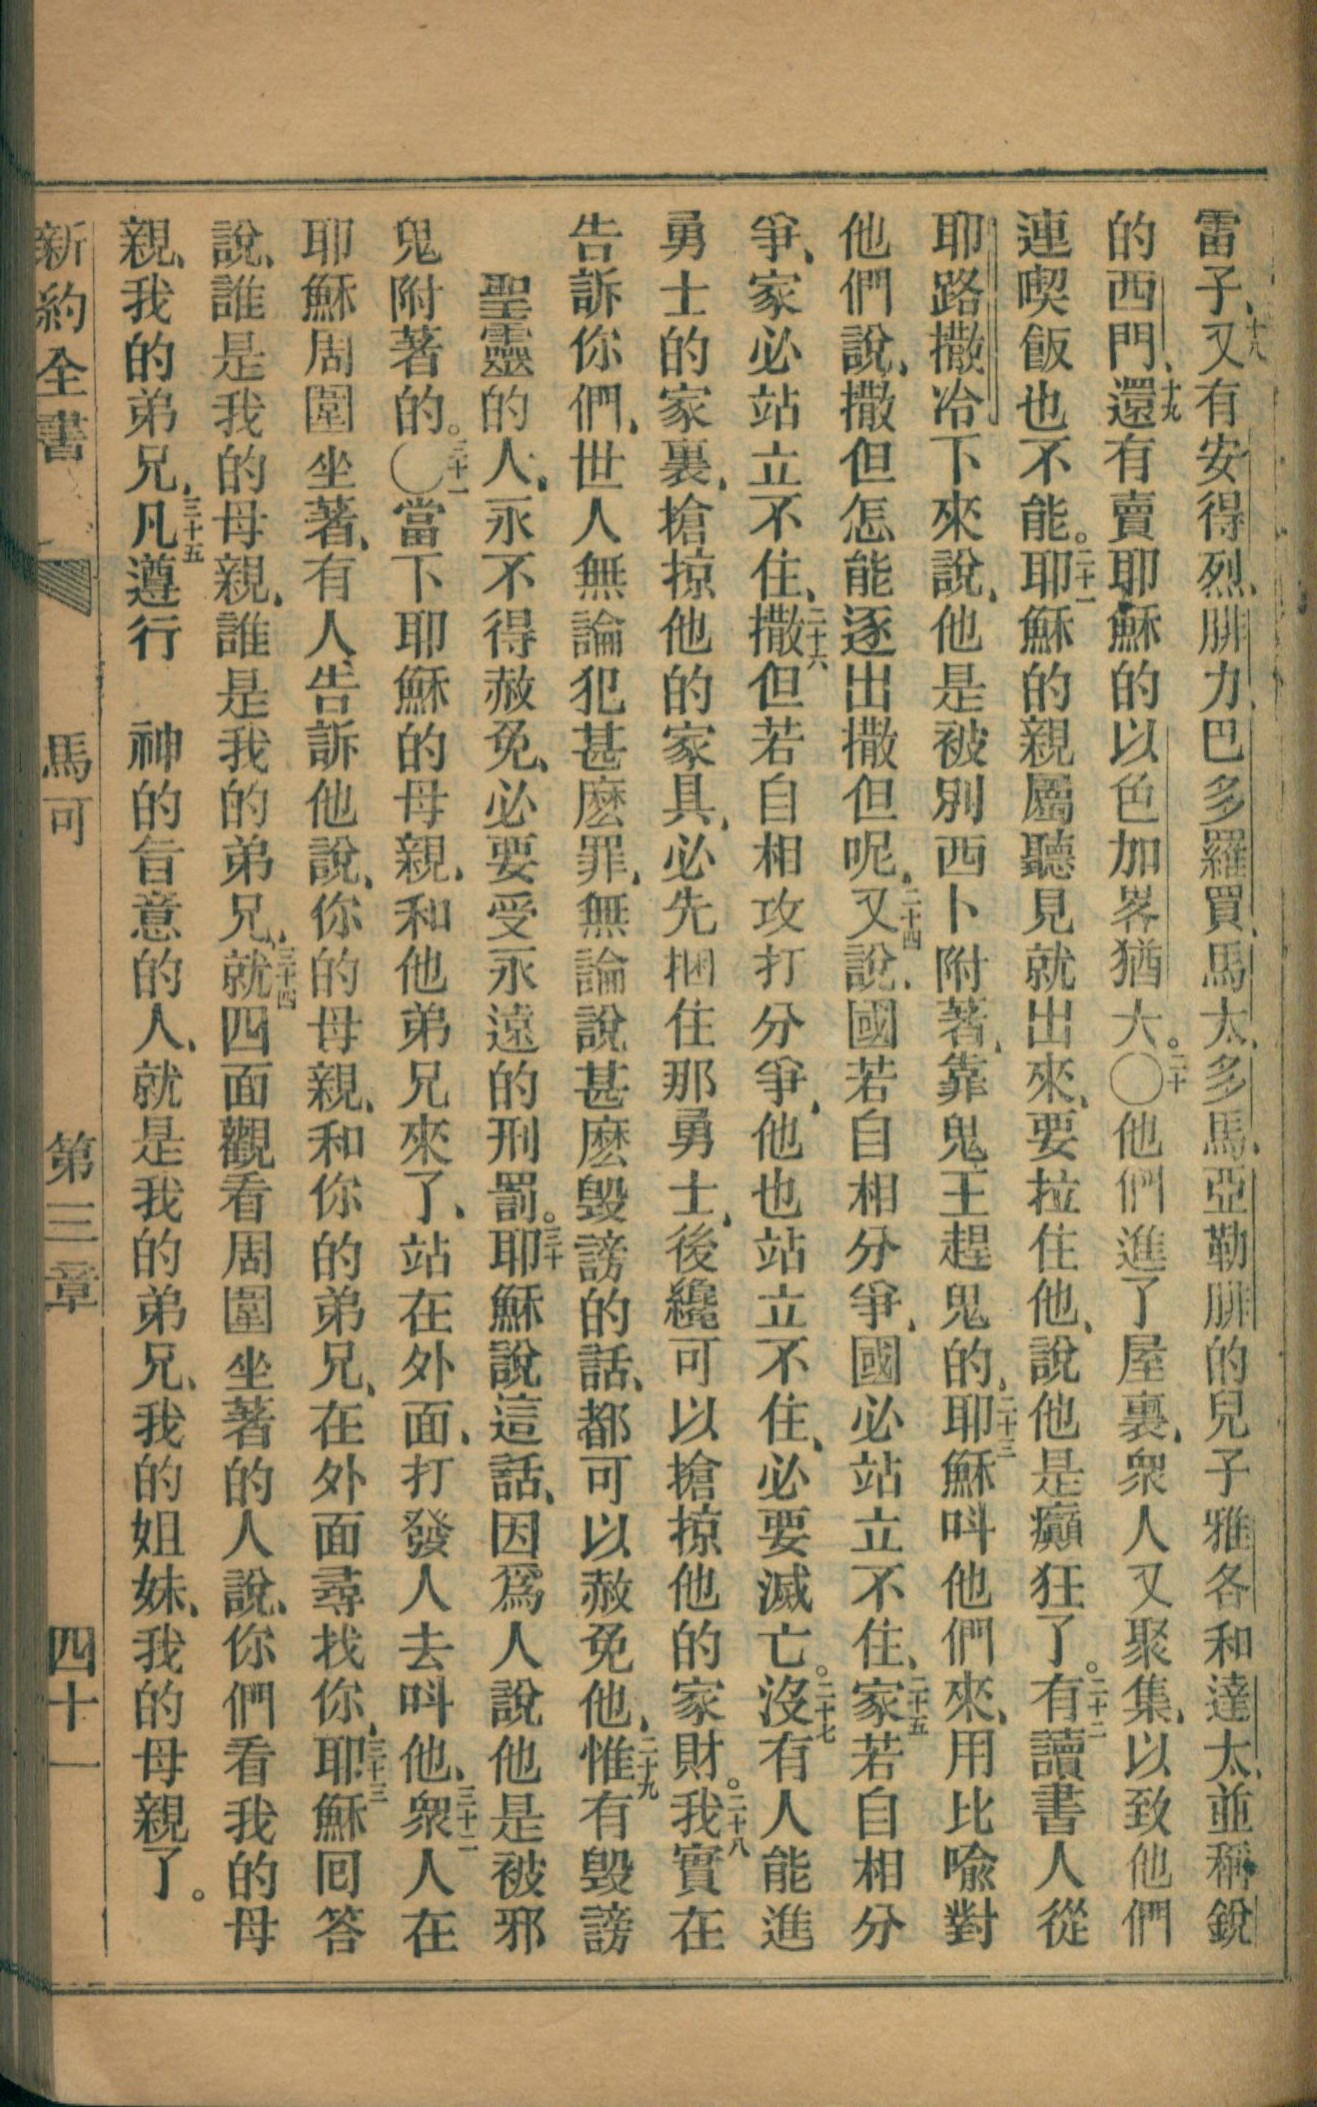 雷子、十八又有安得烈、腓力、巴多羅買、馬太、多馬、亞勒腓的兒子雅各和達太、並稱銳
的西門、十九還有賣耶穌的以色加畧猶大。二十〇他們進了屋裏、衆人又聚集、以致他們
連喫飯也不能。二十一耶穌的親屬聽見就出來、要拉住他、說他是癲狂了。二十二有讀書人從
耶路撒冷下來說、他是被別西卜附著、靠鬼王趕鬼的、二十三耶穌呌他們來、用比喩對
他們說、撒但怎能逐出撒但呢、二十四又說、國若自相分爭、國必站立不住、二十五家若自相分
爭、家必站立不住、二十六撒但若自相攻打分爭、他也站立不住、必要滅亡。二十七沒有人能進
勇士的家裏、搶掠他的家具、必先捆住那勇士、後纔可以搶掠他的家財。二十八我實在
告訴你們、世人無論犯甚麽罪、無論說甚麽毀謗的話、都可以赦免他、二十九惟有毀謗
聖靈的人、永不得赦免、必要受永遠的刑罰。三十耶穌說這話、因爲人說他是被邪
鬼附著的。三十一〇當下耶穌的母親、和他弟兄來了、站在外面、打發人去呌他、三十二衆人在
耶穌周圍坐著、有人告訴他說、你的母親、和你的弟兄、在外面尋找你、三十三耶穌囘答
說、誰是我的母親、誰是我的弟兄、三十四就四面觀看周圍坐著的人說、你們看我的母
親、我的弟兄、三十五凡遵行　神的旨意的人、就是我的弟兄、我的姐妹、我的母親了。
新約全書　馬可　第三章　四十一